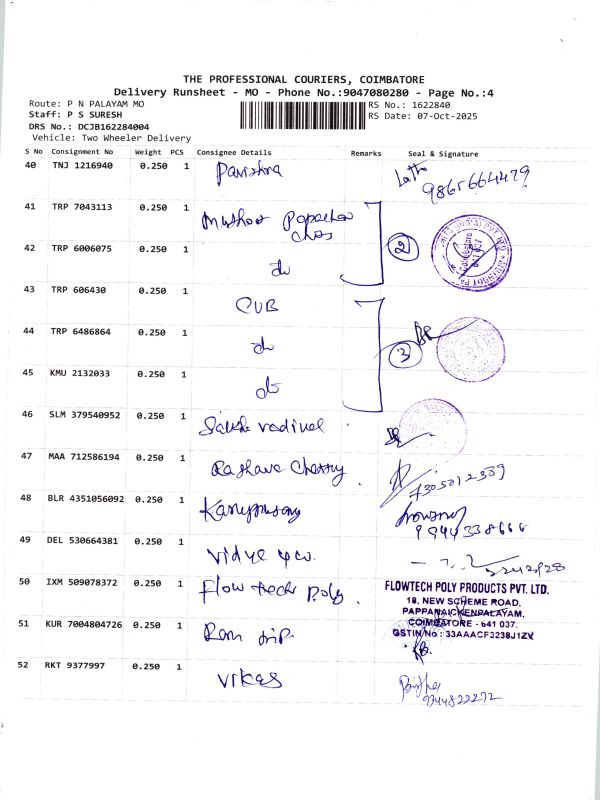 THE PROFESSIONAL COURIERS, COIMBATORE
Delivery Runsheet - MO - Phone No.:9047080280 - Page No.:4
Route: P N PALAYAM MO
RS No.: 1622840
Staff: P S SURESH
RS Date: 07-Oct-2025
DRS No.: DCJB162284004
Vehicle: Two Wheeler Delivery
S No Consignment No Weight PCS Consignee Details Remarks Seal & Signature
40 TNJ 1216940 0.250 1 Pavithra Latha
9865664479
41 TRP 7043113 0.250 1
42 TRP 6006075 0.250 1 do 2
43 TRP 606430 0.250 1 CUB
44 TRP 6486864 0.250 1 do 3
45 KMU 2132033 0.250 1 do
46 SLM 379540952 0.250 1 vadivel
47 MAA 712586194 0.250 1 Raghava
7305012339
48 BLR 4351056092 0.250 1
9944338666
49 DEL 530664381 0.250 1 Vidya
50 IXM 509078372 0.250 1 Flow tech poly
FLOWTECH POLY PRODUCTS PVT. LTD.
18, NEW SCHEME ROAD,
PAPPANAICKENPALAYAM,
COIMBATORE - 641 037.
GSTIN No : 33AAACF3238J1ZV
51 KUR 7004804726 0.250 1 Ram
52 RKT 9377997 0.250 1 Vikas
9344822272